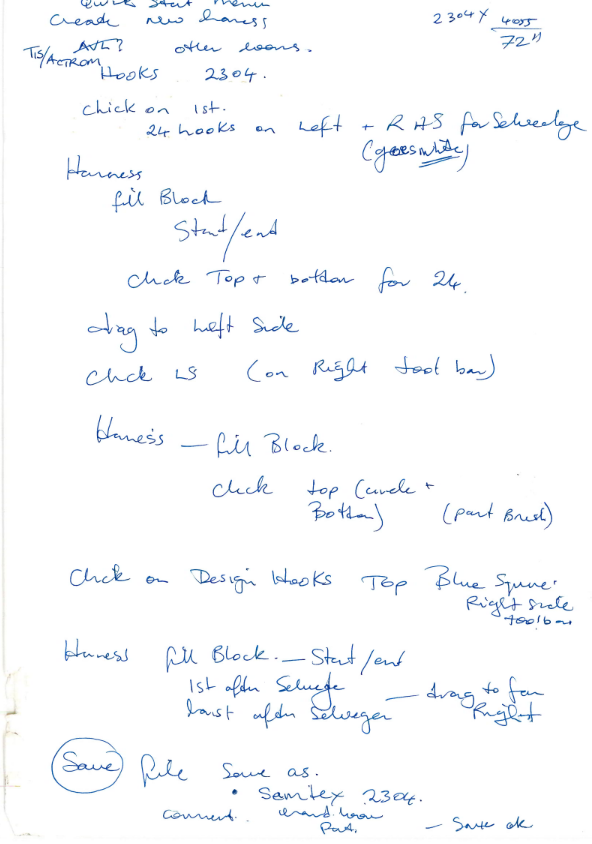 Quick Start Menu
Create new harness
2304 x 4055
72"
AVL? other looms.
TIS/ACTROM
Hooks 2304.
Click on 1st.
24 hooks on Left + RHS for Selvedge
(goes white)
Harness
fill Block
Start/end
Click Top + bottom for 24.
drag to Left Side
Click LS (on Right tool bar)
Harness — fill Block.
Click top (circle +
Bottom) (paint Brush)
Click on Design Hooks Top Blue Square.
Right side
toolbar
Harness fill Block. — Start/end
1st after Selvege — drag to far
Last after Selveger Right
Save file Save as.
• Somitex 2304.
comment.
Part. — Save ok